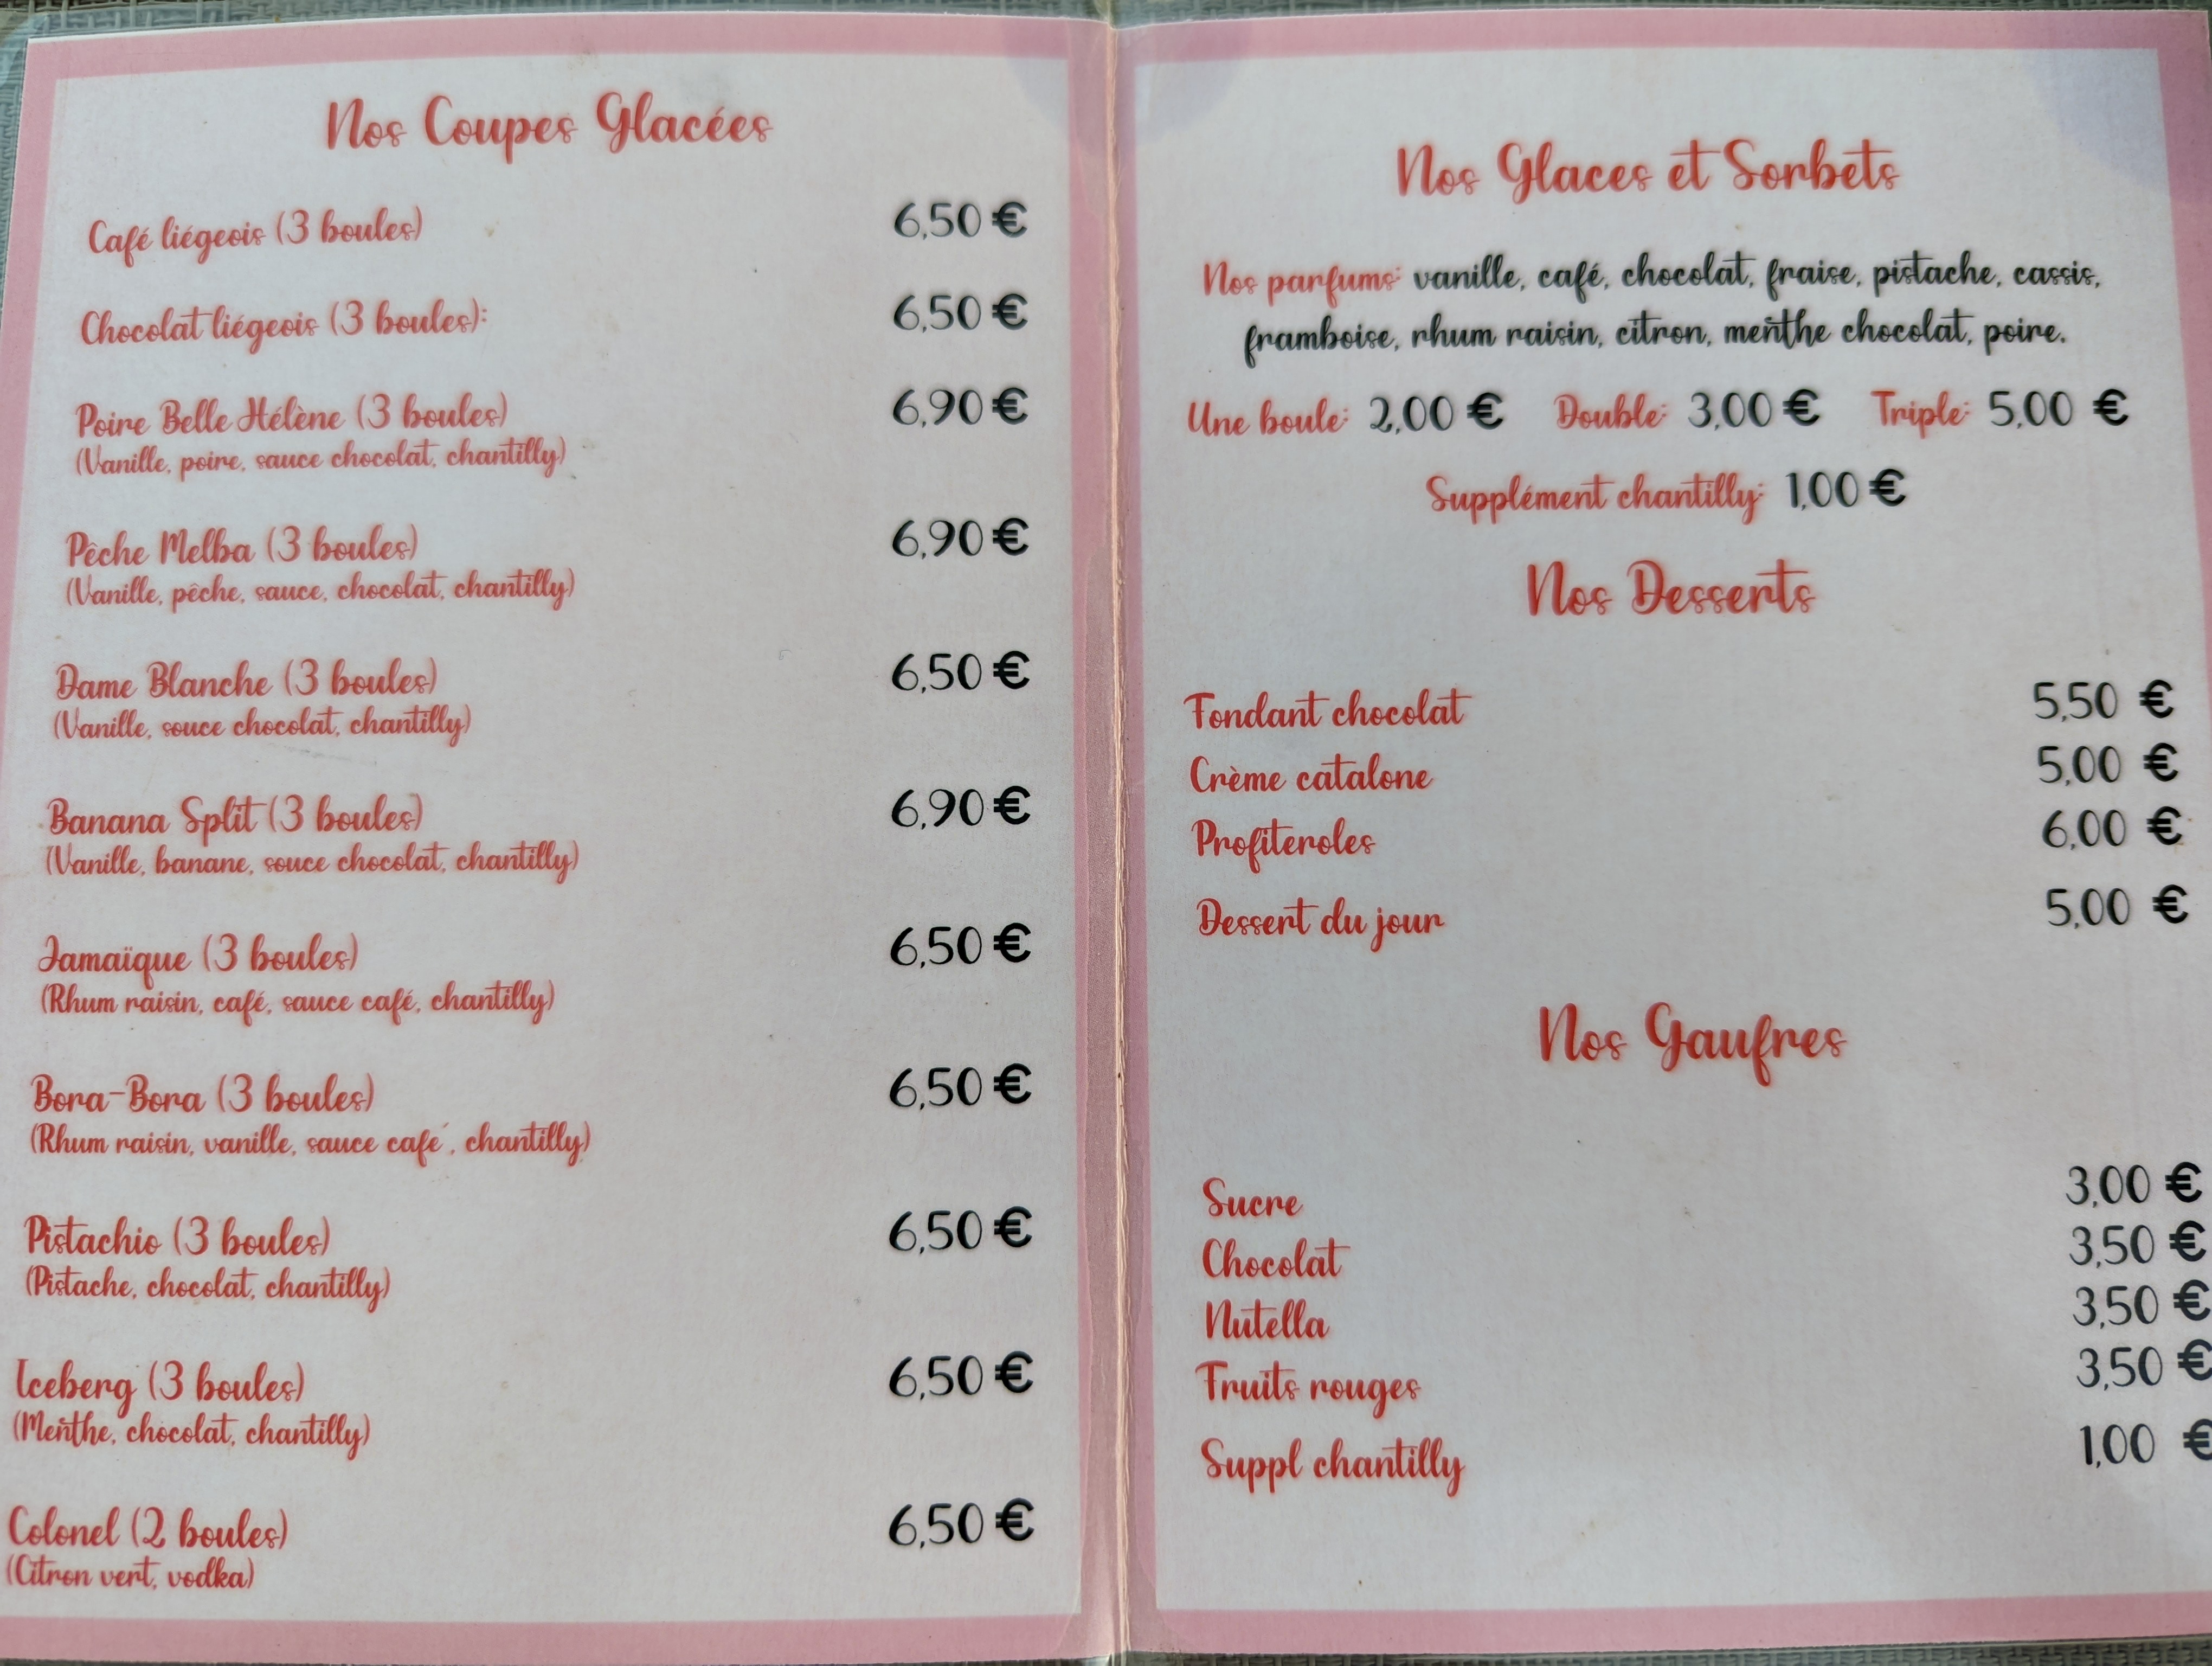 Nos Coupes Glacées
Café liégeois (3 boules) 6,50 €
Chocolat liégeois (3 boules): 6,50 €
Poire Belle Hélène (3 boules) 6,90 €
(Vanille, poire, sauce chocolat, chantilly)
Pêche Melba (3 boules) 6,90 €
(Vanille, pêche, sauce, chocolat, chantilly)
Dame Blanche (3 boules) 6,50 €
(Vanille, souce chocolat, chantilly)
Banana Split (3 boules) 6,90 €
(Vanille, banane, souce chocolat, chantilly)
Jamaïque (3 boules) 6,50 €
(Rhum raisin, café, sauce café, chantilly)
Bora-Bora (3 boules) 6,50 €
(Rhum raisin, vanille, sauce café, chantilly)
Pistachio (3 boules) 6,50 €
(Pistache, chocolat, chantilly)
Iceberg (3 boules) 6,50 €
(Menthe, chocolat, chantilly)
Colonel (2 boules) 6,50 €
(Citron vert, vodka)
Nos Glaces et Sorbets
Nos parfums: vanille, café, chocolat, fraise, pistache, cassis,
framboise, rhum raisin, citron, menthe chocolat, poire.
Une boule: 2,00 € Double: 3,00 € Triple: 5,00 €
Supplément chantilly: 1,00 €
Nos Desserts
Fondant chocolat 5,50 €
Crème catalone 5,00 €
Profiteroles 6,00 €
Dessert du jour 5,00 €
Nos Gaufres
Sucre 3,00 €
Chocolat 3,50 €
Nutella 3,50 €
Fruits rouges 3,50 €
Suppl chantilly 1,00 €